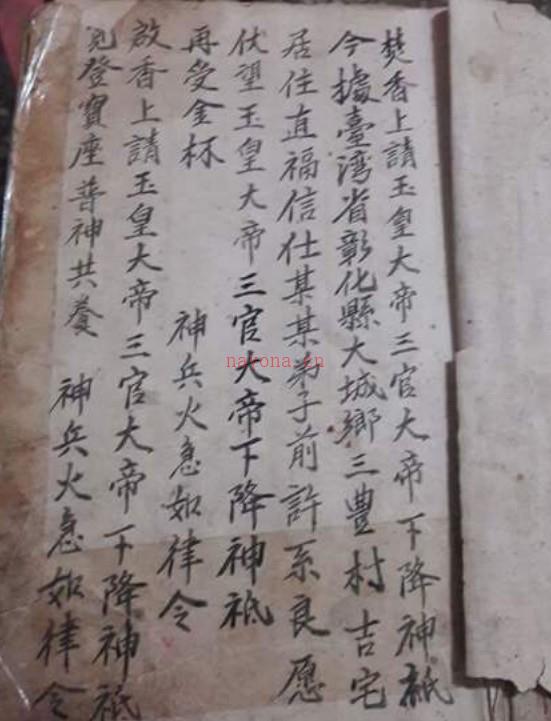 焚香上請玉皇大帝三官大帝下降神祇
今據臺湾省彰化縣大城鄉三豊村吉宅
居住直福信仕某某弟子前許系良愿
伏望玉皇大帝三官大帝下降神祇
再受金杯
神兵火急如律令
啟香上請玉皇大帝三官大帝下降神祇
見登寶座普神共養
神兵火急如律令
nayona.cn